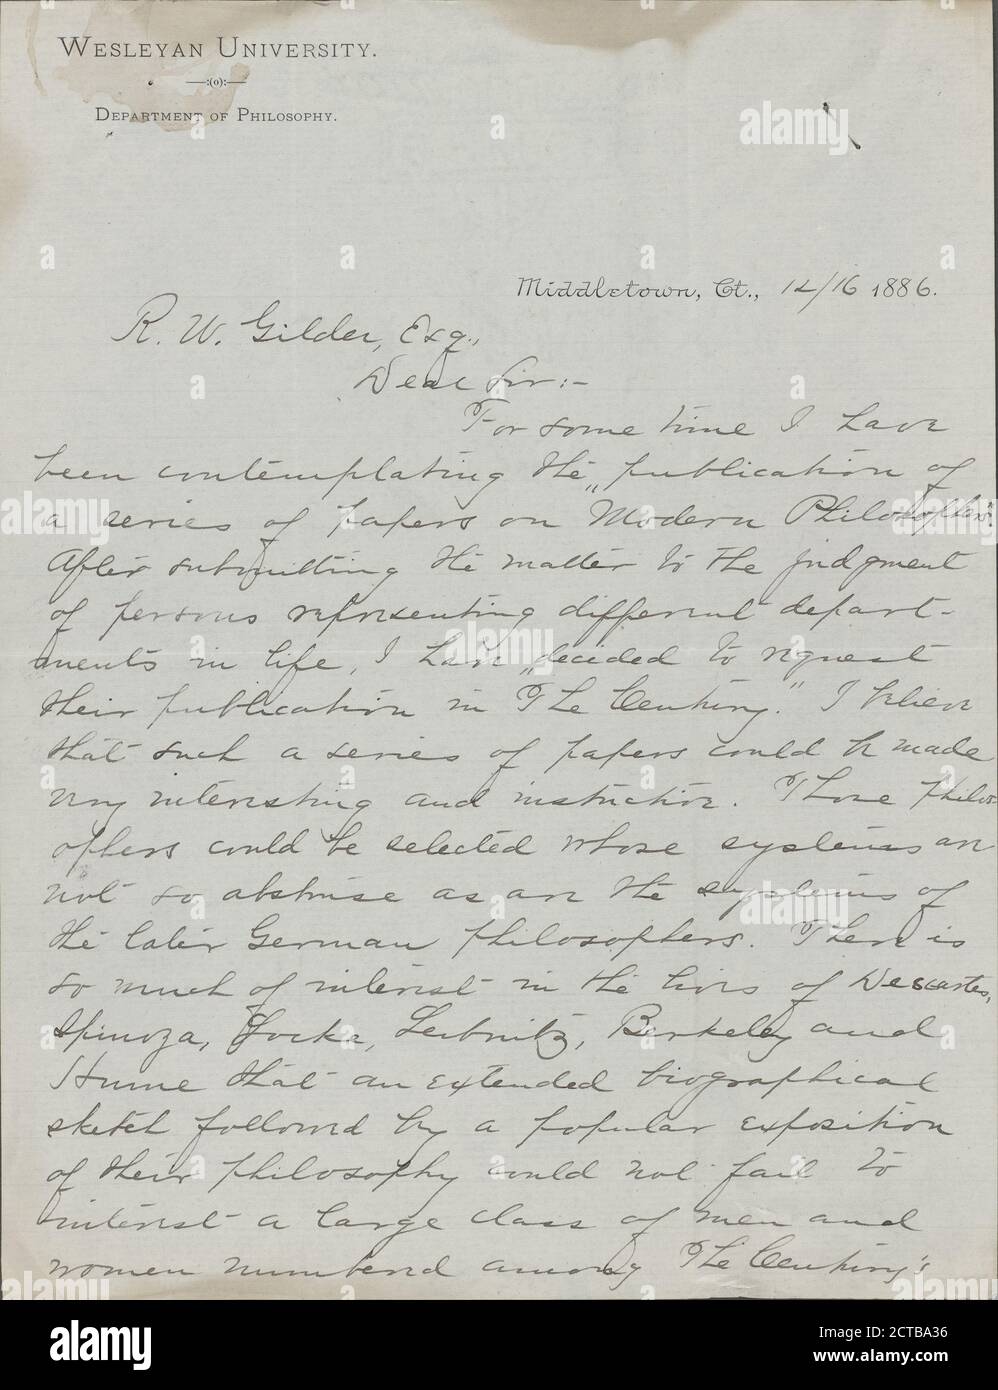 WESLEYAN UNIVERSITY.
—:(o):—
DEPARTMENT OF PHILOSOPHY.
Middletown, Ct., 12/16 1886.
R. W. Gilder, Esq.,
Dear Sir:-
For some time I have
been contemplating the publication of
a series of papers on "Modern Philosophers".
After submitting the matter to the judgment
of persons representing different depart-
ments in life, I have decided to request
their publication in "The Century." I believe
that such a series of papers could be made
very interesting and instructive. Those philos-
ophers could be selected whose systems are
not so abstruse as are the systems of
the later German philosophers. There is
so much of interest in the lives of Descartes,
Spinoza, Locke, Leibnitz, Berkeley and
Hume that an extended biographical
sketch followed by a popular exposition
of their philosophy could not fail to
interest a large class of men and
women numbered among The Century's
alamy
a
Image ID: 2CTBA36
www.alamy.com